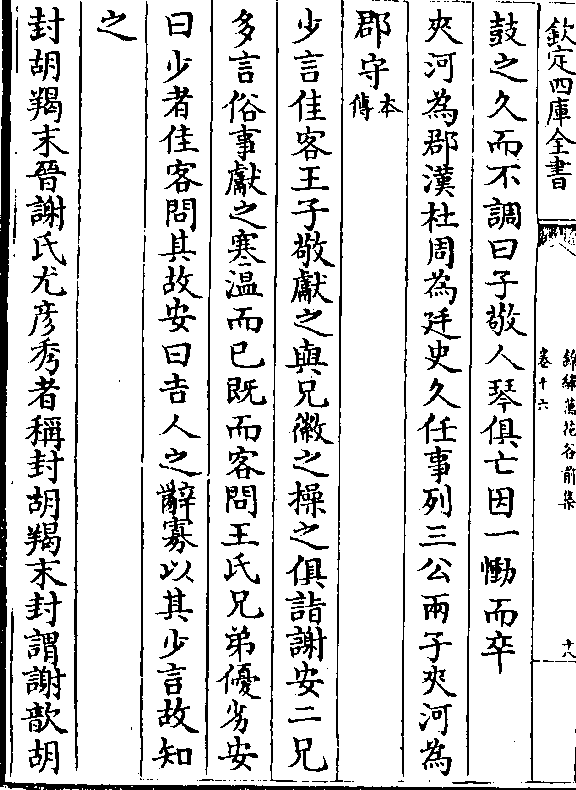 欽定四庫全書
錦繡萬花谷前集
卷十六
十八
鼓之久而不調曰子敬人琴俱亡因一慟而卒
夾河為郡漢杜周為廷史久任事列三公兩子夾河為
郡守本傳
少言佳客王子敬獻之與兄徽之操之俱詣謝安二兄
多言俗事獻之寒温而已既而客問王氏兄弟優劣安
曰少者佳客問其故安曰吉人之辭寡以其少言故知
之
封胡羯末晉謝氏尤彦秀者稱封胡羯末封謂謝歆胡